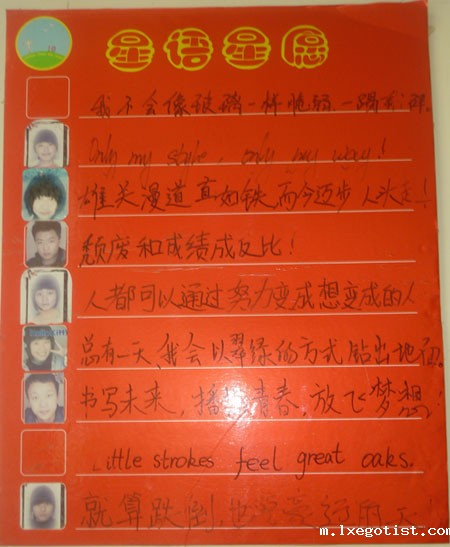 10
星语星愿
我不会像玻璃一样脆弱一踢就碎。
Only my style, only my way!
雄关漫道真如铁而今迈步从头走!
颓废和成绩成反比!
人都可以通过努力变成想变成的人
总有一天,我会以翠绿的方式钻出地面。
书写未来,播撒青春,放飞梦想!
Little strokes feel great oaks.
就算跌倒,也
m.lxegotist.com